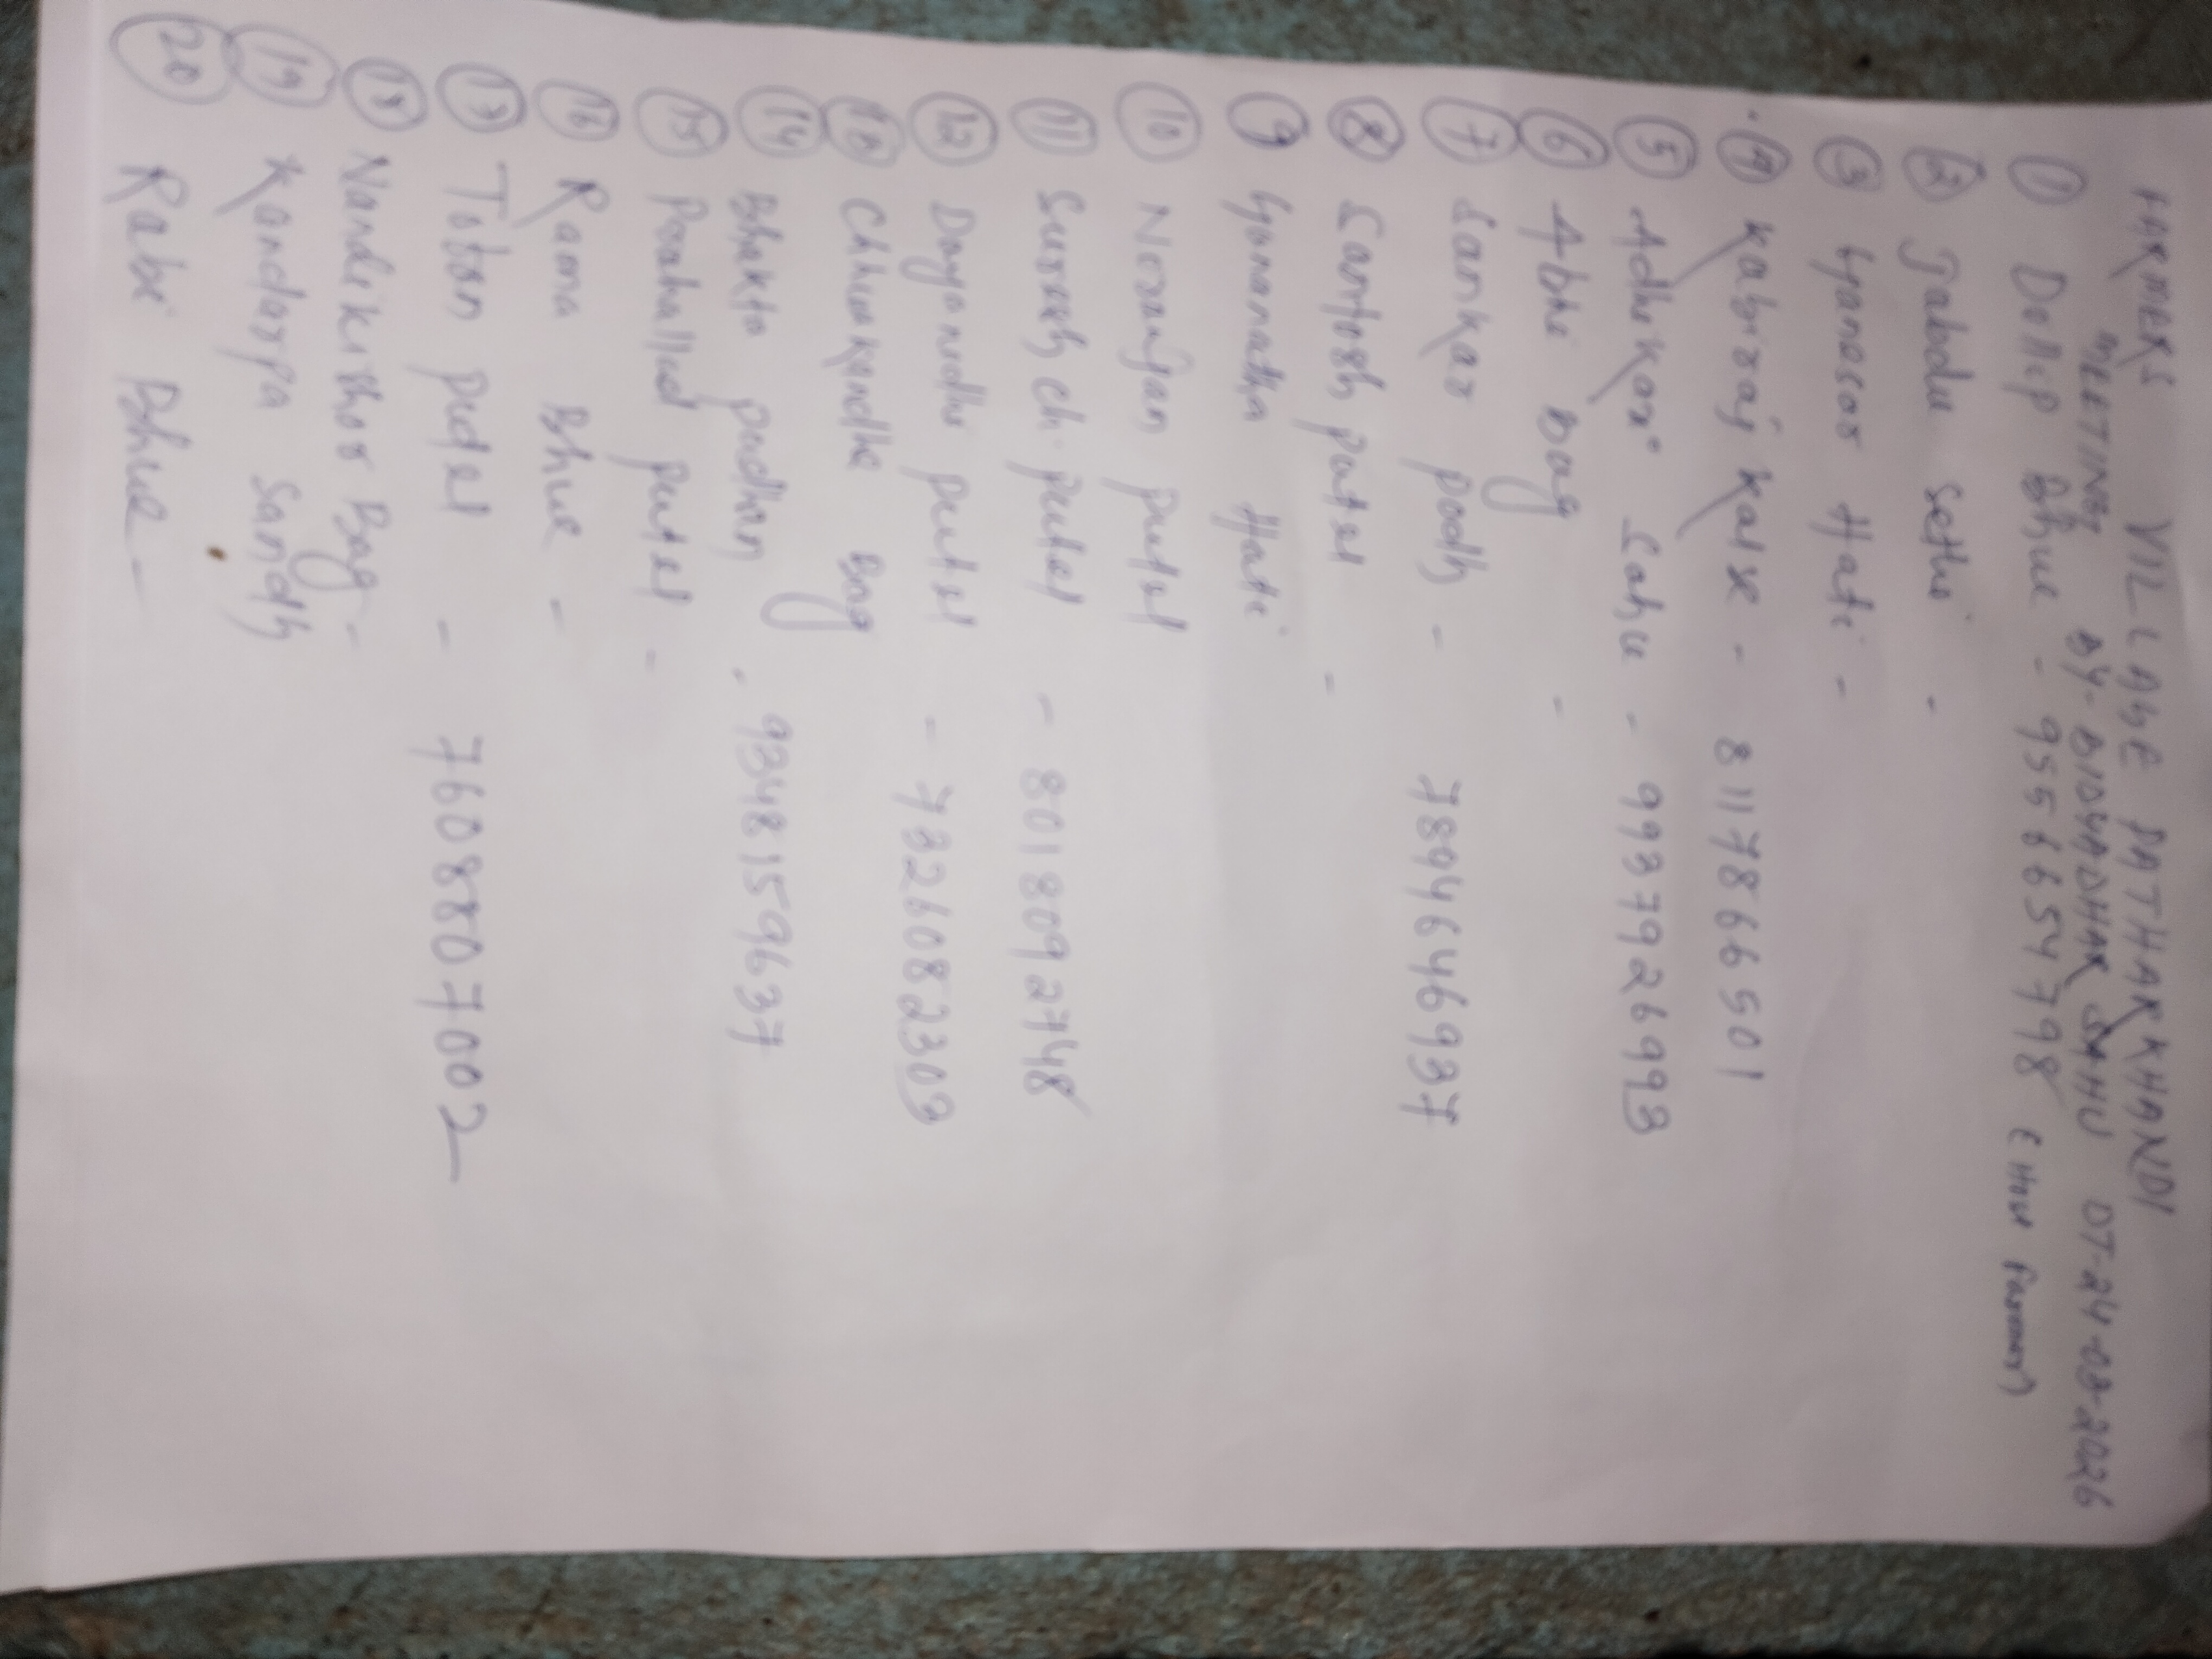 FARMERS VILLAGE PATHARKHANDI
MEETING BY- BIDYADHAR SAHU DT-24-03-2026
① Dellip Bhue - 9556654798 (Host Farmer)
② Jabdu Sethi -
③ Gyanesar Hati -
④ Kabiraj Kalse - 8117866501
⑤ Adhikari Sahu - 9937926993
⑥ Abhi Bag -
⑦ Sankar podh - 7894646937
⑧ Santosh patel -
⑨ Gyananatha Hati
⑩ Niranjan patel
⑪ Suresh ch. patel - 8018092748
⑫ Dayanidhi patel - 7326082303
⑬ Bag
⑭ Bhakta padhan - 9348159637
⑮ patel -
⑯ Rama Bhue -
⑰ Toton patel - 7608807002
⑱ Nandikishor Bag -
⑲ Kandarpa Sandh
⑳ Rabi Bhue -